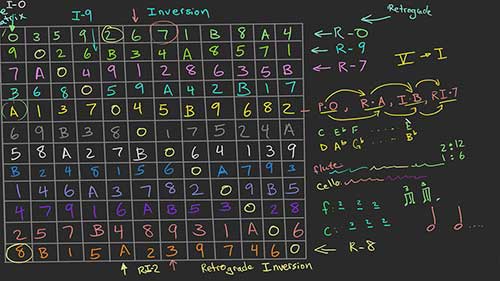 I-0
I-9
Inversion
Retrograde
atrix
0 3 5 9 2 6 7 1 B 8 A 4 ← R-0
9 0 2 6 B 3 4 A 8 5 7 1 ← R-9
V → I
7 A 0 4 9 1 2 8 6 3 5 B ← R-7
3 6 8 0 5 9 A 4 2 B 1 7
A 1 3 7 0 4 5 B 9 6 8 2
P-0, R-A, I-B, RI-7
6 9 B 3 8 0 1 7 5 2 4 A
C E♭ F ..... E
D A♭ G♭ ..... B♭
5 8 A 2 7 B 0 6 4 1 3 9
2:12
flute
1:6
B 2 4 8 1 5 6 0 A 7 9 3
cello
1 4 6 A 3 7 8 2 0 9 B 5
4 7 9 1 6 A B 5 3 0 2 8
f: 2 2 2
3 3
2 5 7 B 4 8 9 3 1 A 0 6
c: 2 2 2
8 B 1 5 A 2 3 9 7 4 6 0 ← R-8
RI-2
Retrograde Inversion